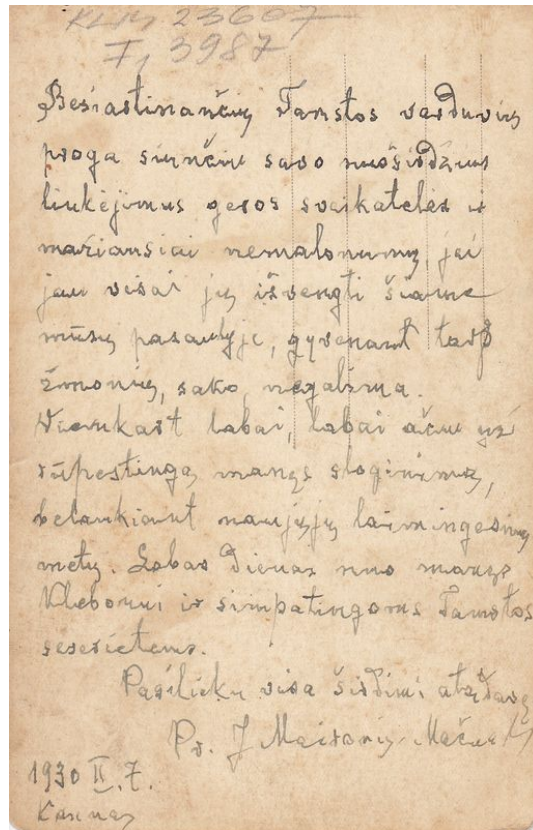 KLM 23607
I, 3987
Besiartinančių Tamstos varduvių
proga siunčiu savo nuoširdžius
linkėjimus geros sveikatėlės ir
mažiausiai nemalonumų, jei
jau visai jų išvengti šiame
mūsų pasaulyje, gyvenant tarp
žmonių, sako, negalima.
Vienukart labai, labai ačiu už
rūpestingą manęs sloginimą,
belaukiant naujųjų laimingesnių
metų. Labas dienas nuo manęs
Klebonui ir simpatingoms Tamstos
seserėtėms.
Pasilieku visa širdimi atsidavęs
Pr. J Maironis-Mačiulis
1930 II. 7.
Kaunas